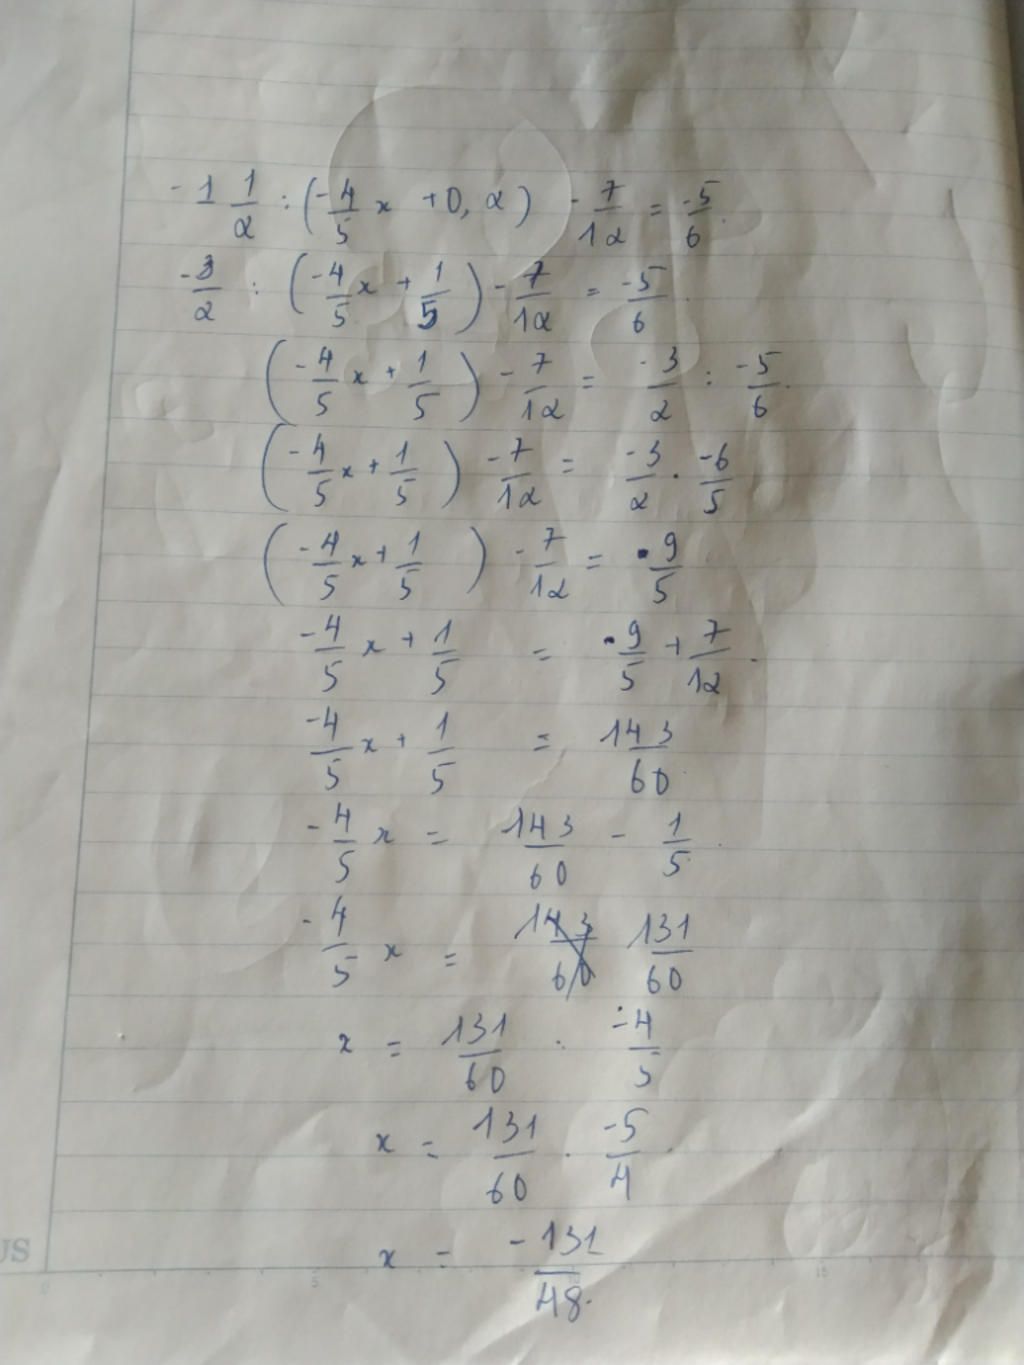 -1 1/2 : (-4/5 x + 0,2) - 7/12 = -5/6.
-3/2 : (-4/5 x + 1/5) - 7/12 = -5/6.
(-4/5 x + 1/5) - 7/12 = -3/2 : -5/6.
(-4/5 x + 1/5) - 7/12 = -3/2 . -6/5
(-4/5 x + 1/5) - 7/12 = 9/5
-4/5 x + 1/5 = 9/5 + 7/12.
-4/5 x + 1/5 = 143/60
-4/5 x = 143/60 - 1/5.
-4/5 x = 143/60 131/60
x = 131/60 : -4/5
x = 131/60 . -5/4.
x = -131/48.
US
0 5 10 15